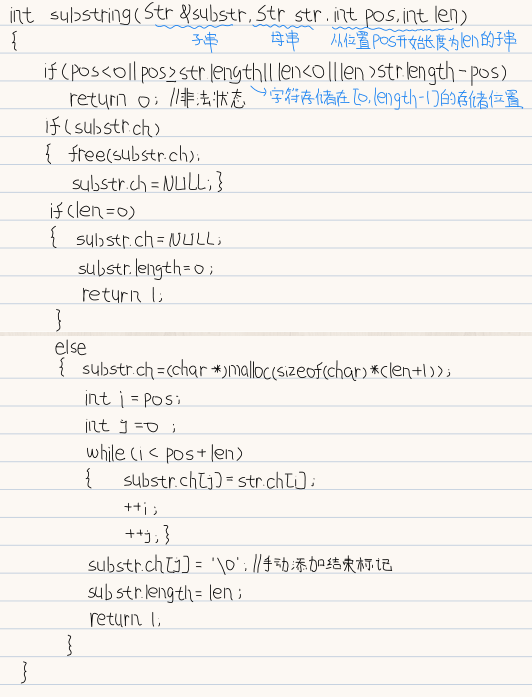 int substring(Str &substr, Str str, int pos, int len)
{ 子串 母串 从位置pos开始长度为len的子串
if(pos<0||pos≥strlength||len<0||len>str.length-pos)
return 0; //非法状态 →字符存储在[0,length-1]的存储位置
if(substr.ch)
{ free(substr.ch);
substr.ch=NULL;}
if(len=0)
{ substr.ch=NULL;
substr.length=0;
return 1;
}
else
{ substr.ch=(char *)malloc(sizeof(char)*(len+1));
int i=pos;
int j=0 ;
while(i<pos+len)
{ substr.ch[j]=str.ch[i];
++i;
++j;}
substr.ch[j]='\0'; //手动添加结束标记
substr.length=len;
return 1;
}
}